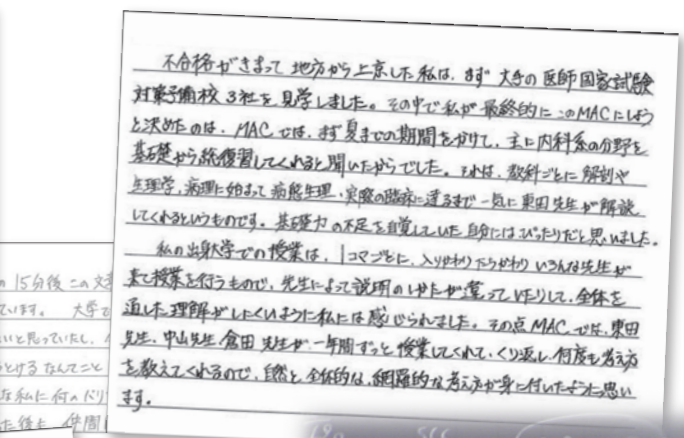 不合格がきまって 地方から上京した私は、まず 大手の 医師国家試験
対策予備校 3社を 見学しました。その中で私が 最終的に このMACにしよう
と決めたのは、MACでは、まず夏までの期間をかけて、主に内科系の分野を
基礎から総復習してくれると聞いたからでした。それは、教科ごとに 解剖や
生理学、病理に始まって 病態生理、実際の臨床に達するまで 一気に 東田先生が 解説
してくれるというものです。基礎力の不足を自覚していた 自分にはぴったりだと思いました。
私の出身大学での授業は、1コマごとに、入りかわり たちかわり いろんな先生が
来て授業を行うもので、先生によって説明のしかたが違っていたりして、全体を
通した理解がしにくいように私には感じられました。その点MACでは、東田
先生、中山先生 倉田 先生が、一年間ずっと授業してくれて、くり返し何度も考え方
を教えてくれるので、自然と 全体的な、網羅的な考え方が身に付いたように思い
ます。
15分後 この文
ています。 大学で
いと思っていたし、
とける なんてこと
な私に何の
た後も 仲間